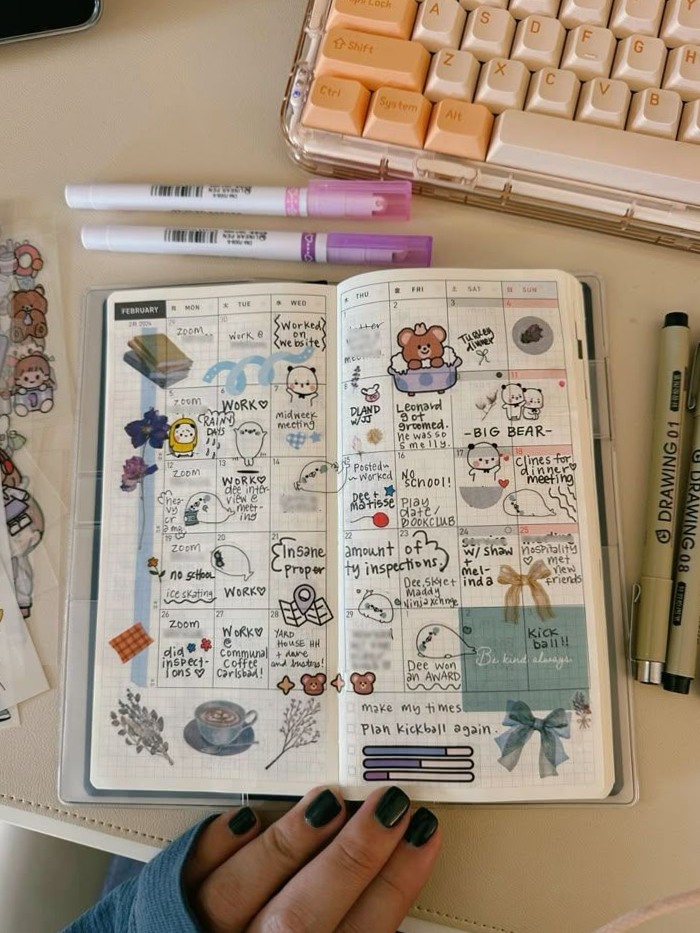 Caps Lock
A
S
D
F
G
H
Shift
Z
X
C
V
B
Ctrl
System
Alt
FEBRUARY
2月 2024
月 MON
火 TUE
水 WED
木 THU
金 FRI
土 SAT
日 SUN
zoom
work @
Worked
on
website
2
3
4
Turkey
dinner
5
zoom
RAINY
DAYS
6
WORK♡
7
midweek
meeting
8
DLAND
w/JJ
Leonard
got
groomed.
he was so
smelly.
11
-BIG BEAR-
12
zoom
13
WORK♡
dee inter-
view @
meet-
ing
14
15
Posted~
~ Worked
Dee +
Matisse
16
No
SCHOOL!
Play
date/
BOOKCLUB
17
18
Clines for
dinner♡
meeting
19
zoom
no school
ice skating
20
WORK♡
21
Insane
proper
22
amount
ty inspections,
23
of
Dee, Skye +
Maddy
Ninja xchnge
24
service
w/ shaw
+
mel-
inda
25
Hospitality
met
new
friends
26
zoom
did
inspect-
ions ♡
27
WORK♡
@
Communal
Coffee
Carlsbad!
28
YARD
HOUSE HH
+ dave
and busters!
29
Dee won
an AWARD
Kick
ball!!
Be kind always.
make my times
Plan kickball again.
DRAWING 01
DRAWING 08